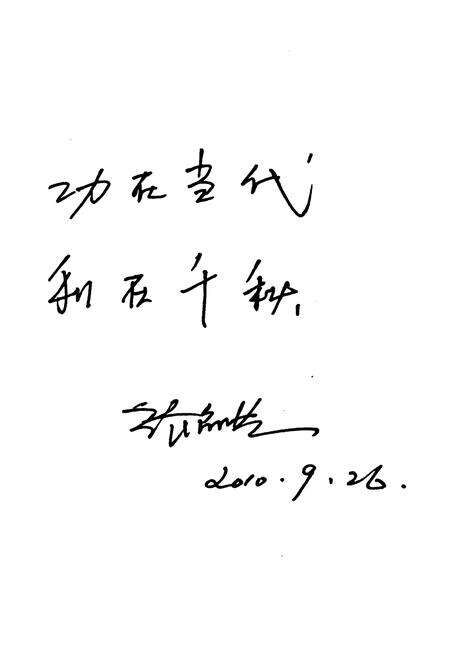 功在当代
利在千秋
2010.9.26.